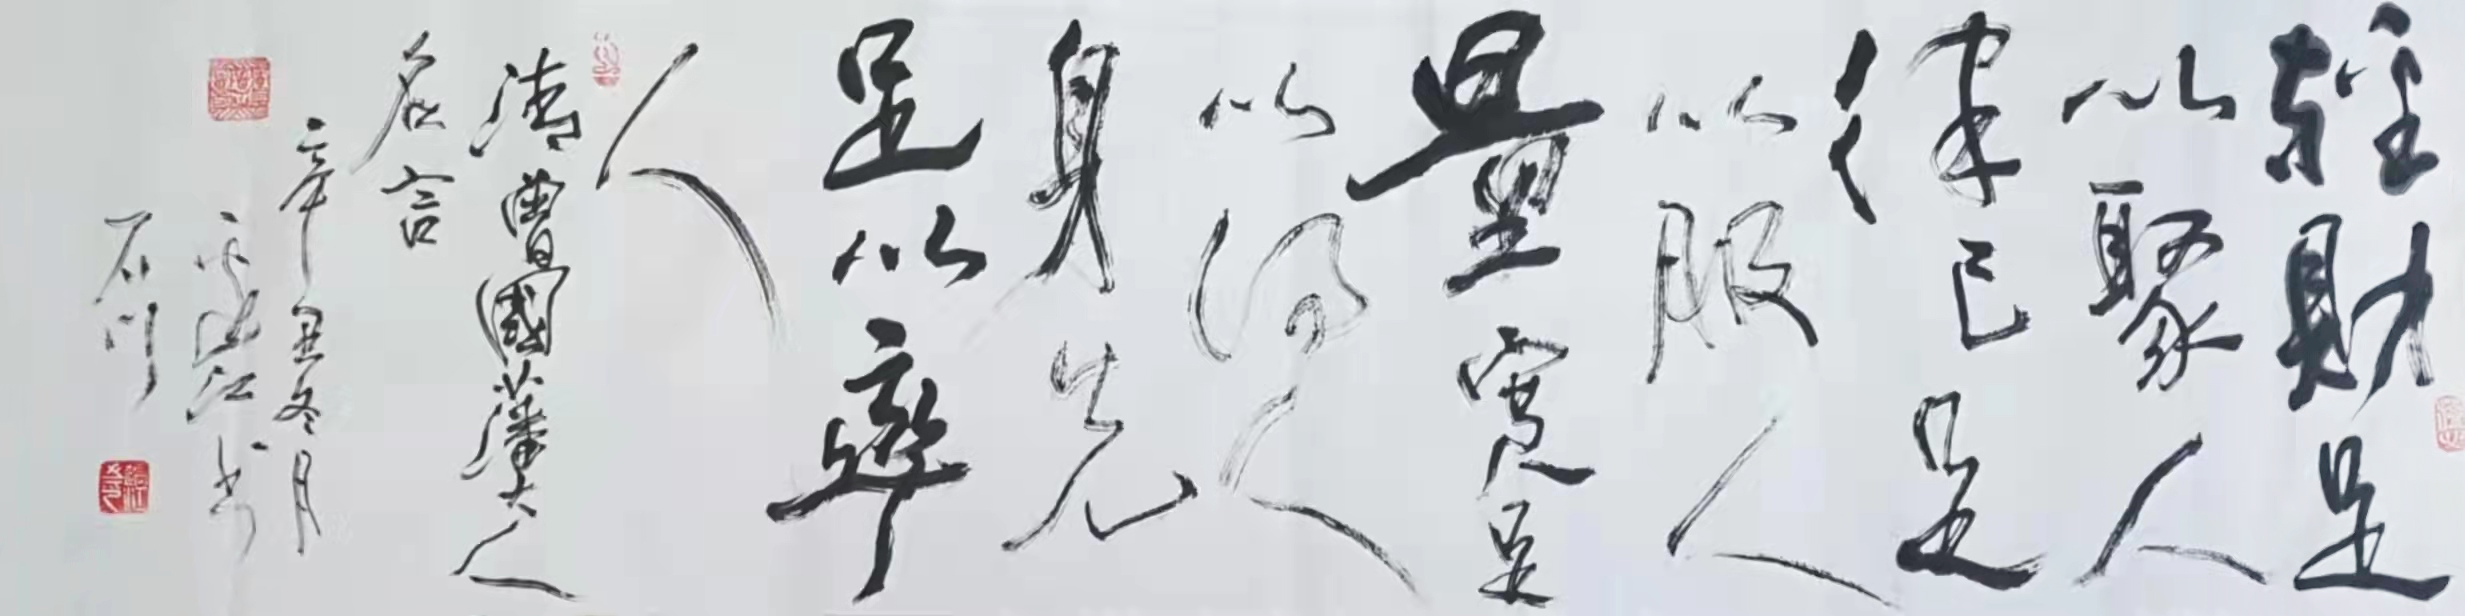 輕財足
以聚人
律己足
以服人
量寬足
以得人
身先
足以率
人
清曾國藩大人
名言
辛丑冬月
江书
石川